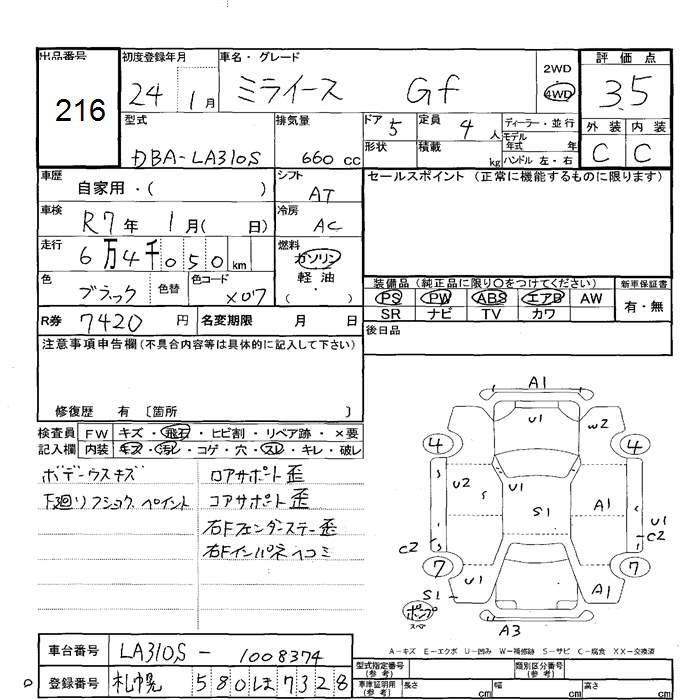 出品番号 初度登録年月 車名・グレード 2WD 評価点
216 24 1月 ミライース Gf 4WD 3.5
型式 排気量 ドア 5 定員 4人 ディーラー・並行 外装 内装
DBA-LA310S 660cc 形状 積載 kg モデル年式 年 C C
ハンドル 左・右
車歴 自家用・( ) シフト AT セールスポイント(正常に機能するものに限ります)
車検 R7年 1月( 日) 冷房 AC
走行 6万4千050km 燃料 ガソリン
軽油・( )
色 ブラック 色替 色コード X07 装備品(純正品に限り○をつけてください) 新車保証書
PS PW ABS エアB AW 有・無
SR ナビ TV カワ
R券 7420円 名変期限 月 日 後日品
注意事項申告欄(不具合内容等は具体的に記入して下さい)
修復歴 有 〔箇所 〕
検査員 FW キズ・飛石・ヒビ割・リペア跡・×要
記入欄 内装 キズ・汚レ・コゲ・穴・スレ・キレ・破レ
ボデーウスキズ ロアサポート歪
下廻リフショク、ペイント コアサポート歪
右Fフェンダステー歪
右Fインパネヘコミ
A1
U1 W2
4 4
U2 U1 A1
S1 U1
C2 C2
7 7
U1 A1
S1
ポンプ
スペア A3
A-キズ E-エクボ U-凹み W-補修跡 S-サビ C-腐食 XX-交換済
車台番号 LA310S-1008374 型式指定番号(参考) 類別区分番号(参考)
登録番号 札幌 580 ほ 7328 車庫証明用(参考) 長さ cm 幅 cm 高さ cm